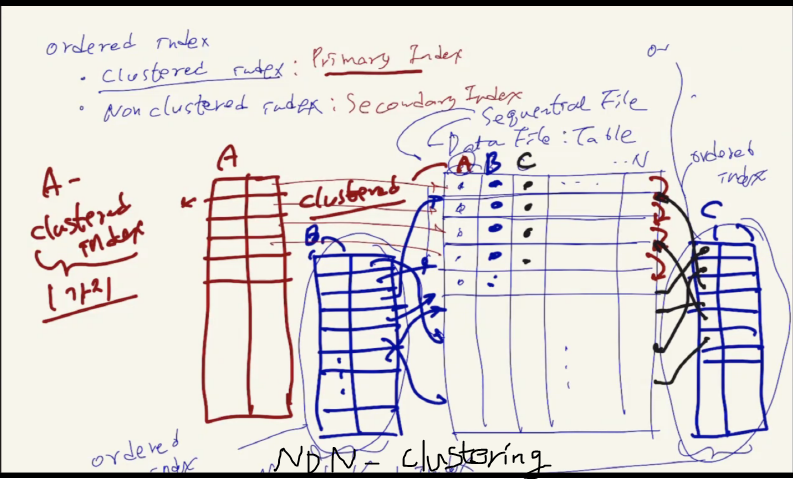 ordered index
· Clustered index : Primary Index
· Nonclustered index : Secondary Index
Sequential File
Data File : Table
A B C ... N
ordered
index
A
clustered
B
C
A-
clustered
index
1개
ordered
index
NON - clustering